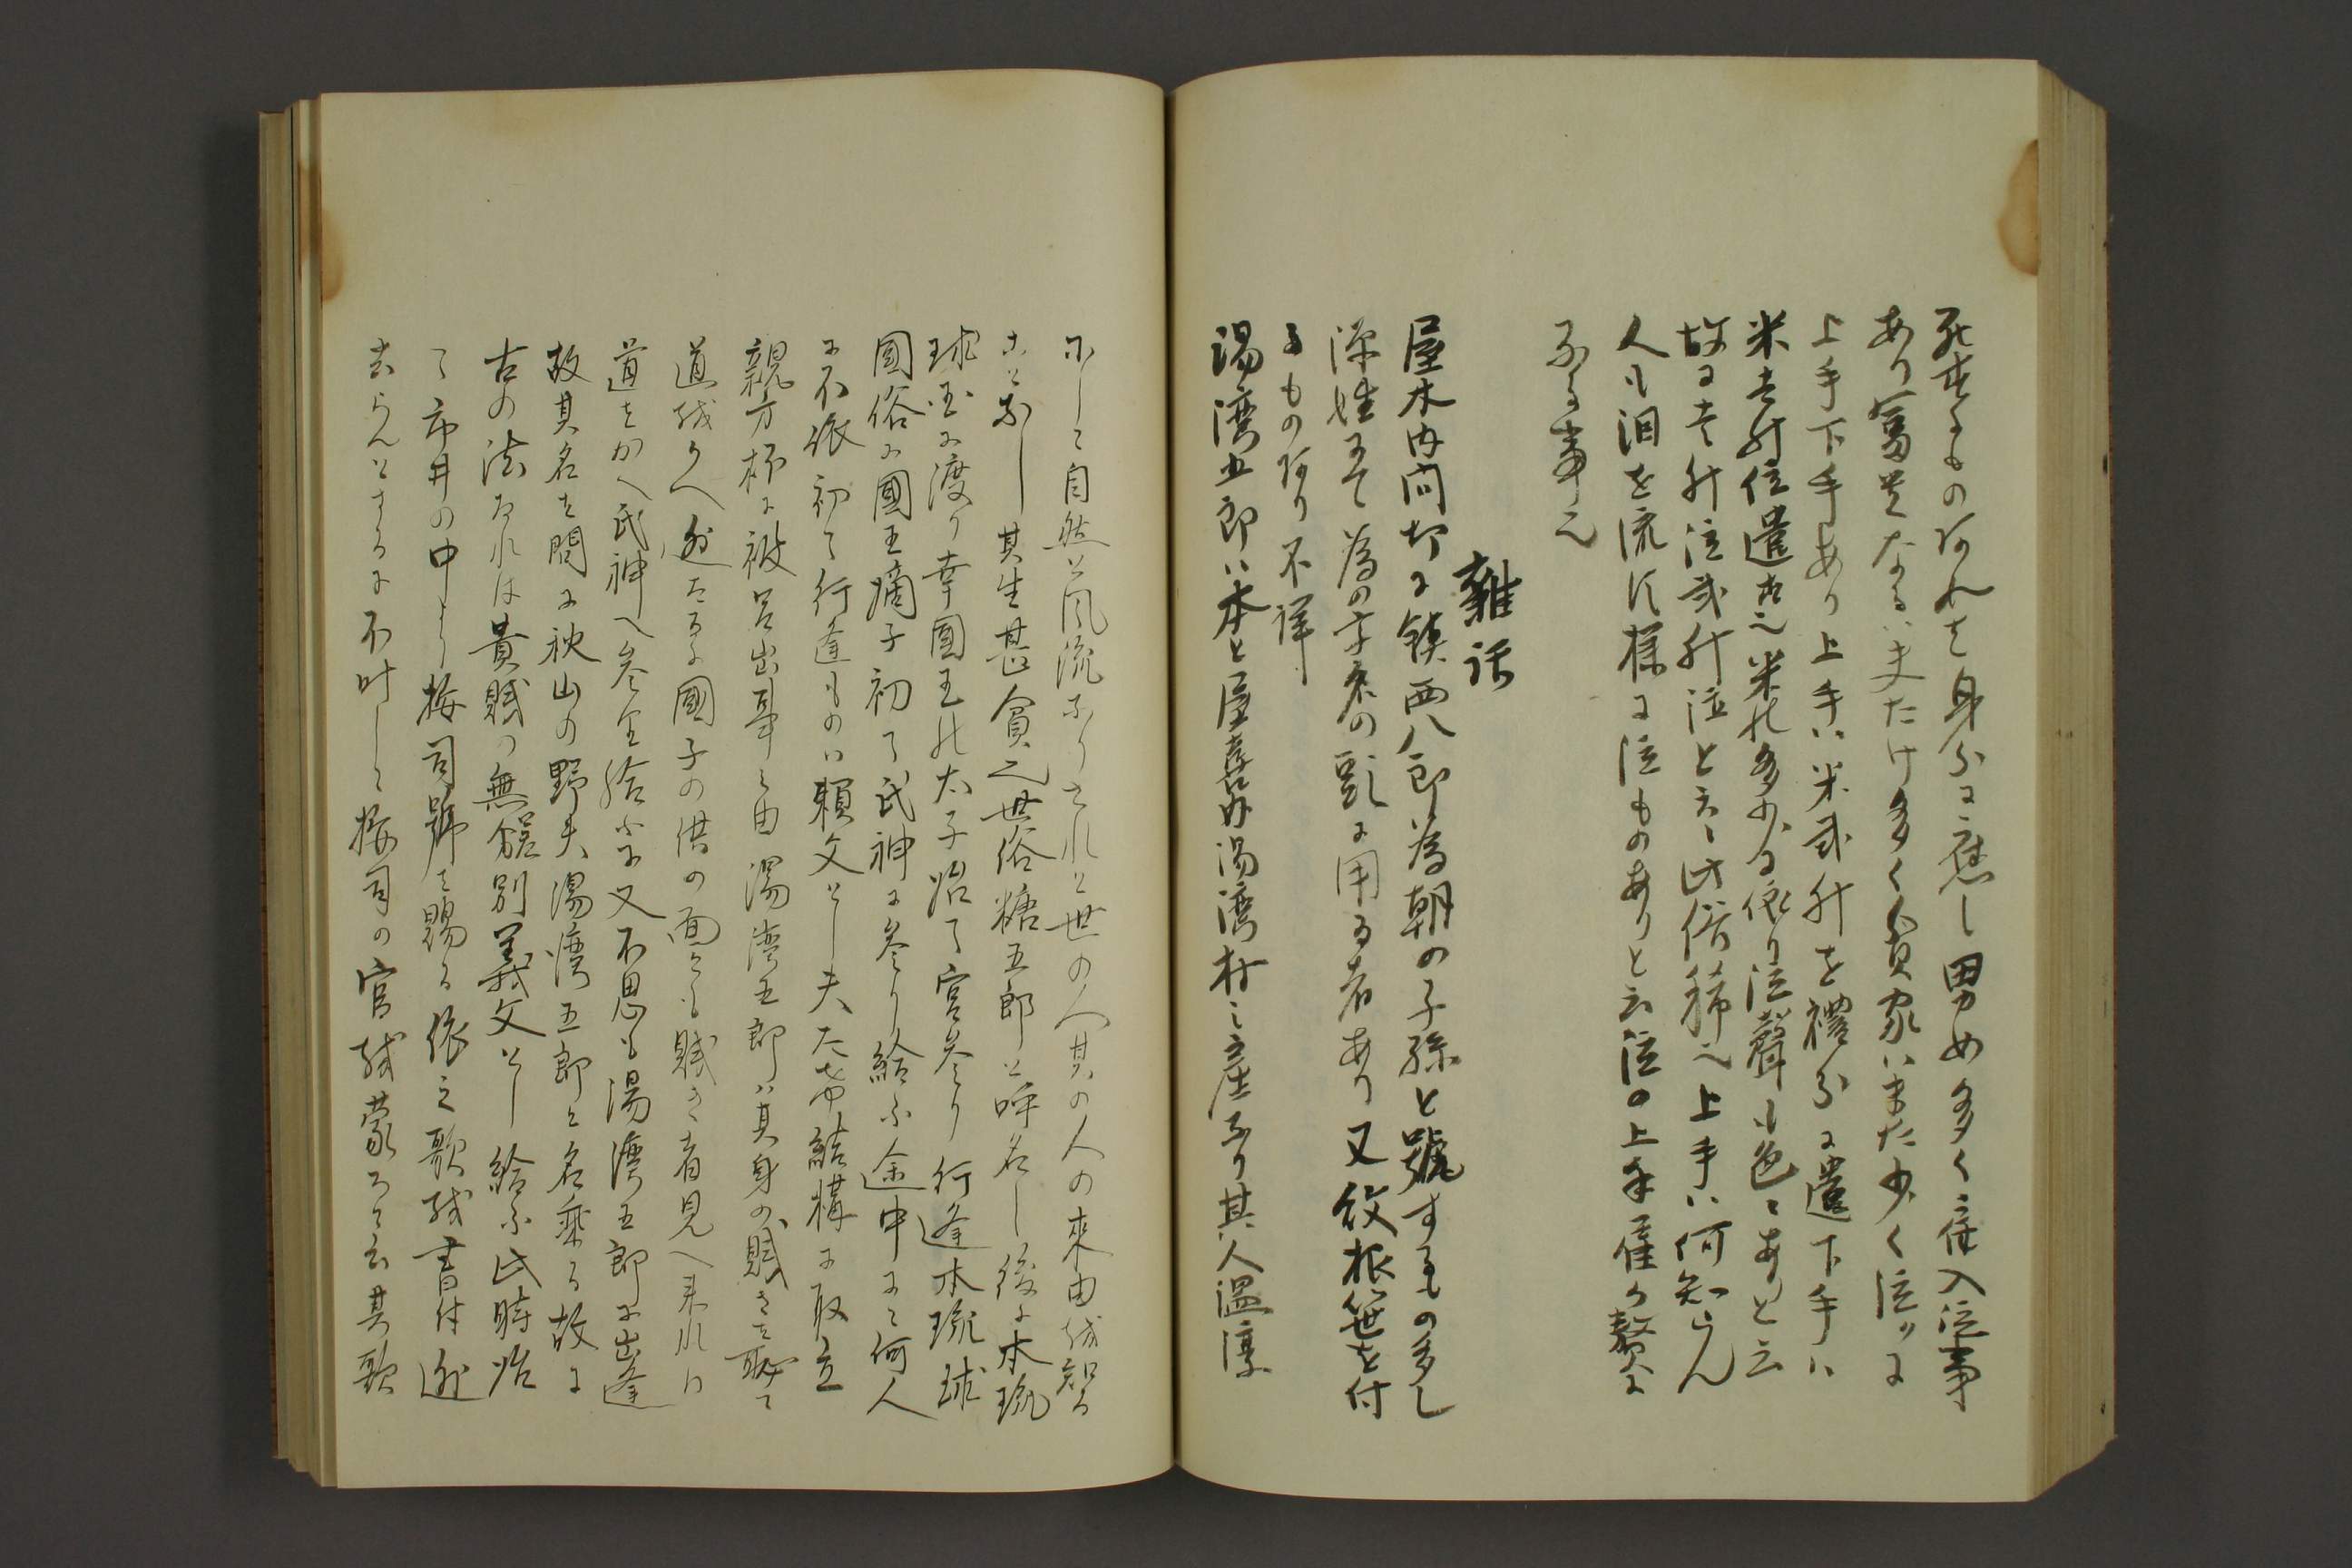 死去するものあれは身分に應し男女多く雇入泣事
あり富貴なるハ夫たけ多く貧家ハまた少く泣ツに
上手下手あり上手ハ米弐升を禮分に遣下手ハ
米壱升位遣す也米の多少に依り泣聲も色々ありと云
故に壱升泣弐升泣と云此俗稱也上手ハ何知らん
人も泪を流す様に泣ものありと云泣の上手雇ひ
なる事也
雜話
屋木内間切に鎮西八郎為朝の子孫と號するもの多し
源姓にて為の字名の頭に用る者あり又紋根笹を付
るものあり不詳
湯湾五郎ハ本と屋喜内湯湾村之産なり其人温淳
にして自然と風流なりされと世の人其の人の來由を知る
ことなし其生甚貧也世俗糖五郎と呼名し後に本琉
球國に渡り幸國王の太子始て宮参り行逢本琉球
國俗に國王嫡子初て氏神に参り給ふ途中にて何人
に不依初て行逢ものハ頼父とし夫たちや結構に取立
親方杯に被召出事之由湯湾五郎ハ其身の賎きを恥て
道をかへ逃たるに國子の供の面々も賎き者見へ来れハ
道をかへ氏神へ参宮給ふに又不思も湯湾五郎に出逢
故其名を問に秋山の野夫湯湾五郎と名乘る故に
古の法なれは貴賎の無差別義父とし給ふ此時始
て市井の中より按司號を賜る依之歌を書付逃
去らんとするに不叶して按司の官を蒙ると云其歌